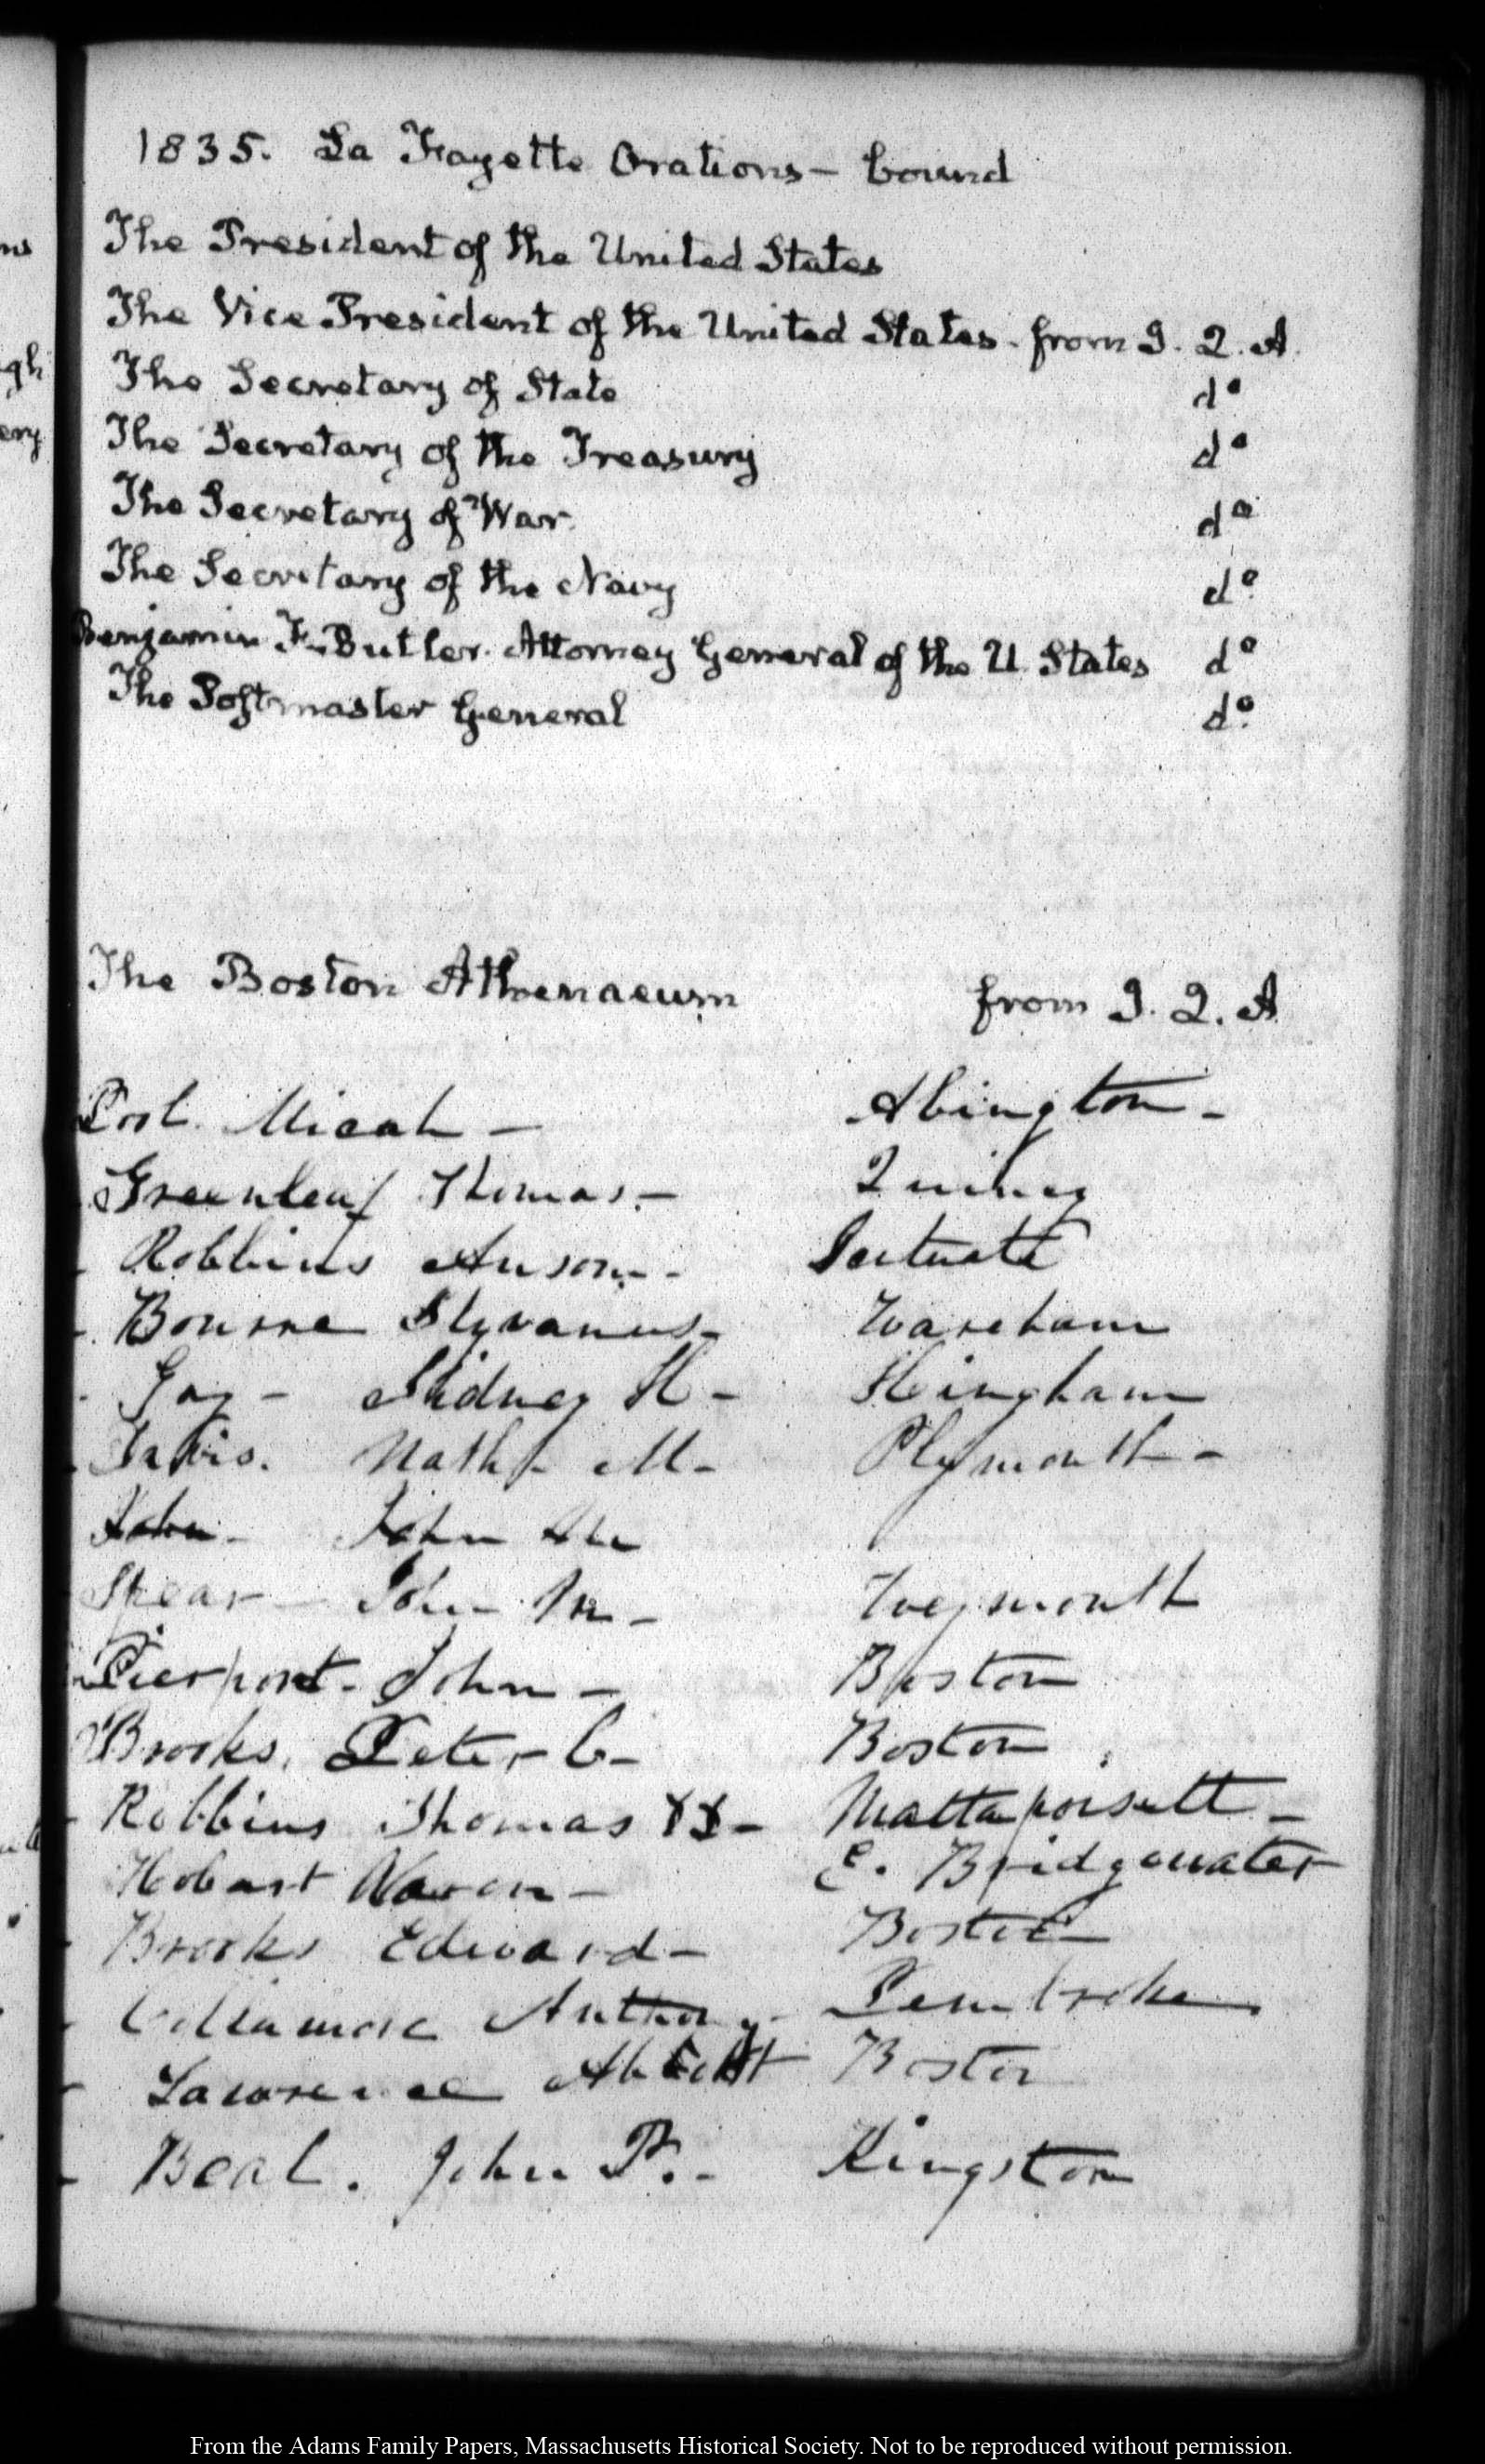 1835. La Fayette Orations — bound
The President of the United States
The Vice President of the United States - from J. Q. A.
The Secretary of State do
The Secretary of the Treasury do
The Secretary of War. do
The Secretary of the Navy do
Benjamin F. Butler. Attorney General of the U. States do
The Postmaster General do
The Boston Athenaeum from J. Q. A
Micah — Abington -
Greenleaf Thomas. — Quincy
Robbins Anson - Scituate
Bourne Slyvanus - Wareham
Gay - Sidney H - Hingham
Nathl. M - Plymouth -
John
Spear - John M - Weymouth
Pierpont - John — Boston
Brooks. Peter C - Boston
Robbins Thomas - Mattapoisett -
Hobart Aaron - E. Bridgewater
Brooks Edward - Boston
Collamore Anthony - Pembroke
Lawrence Abbott Boston
Beal. John P. - Kingston
ns
gh
ery
From the Adams Family Papers, Massachusetts Historical Society. Not to be reproduced without permission.